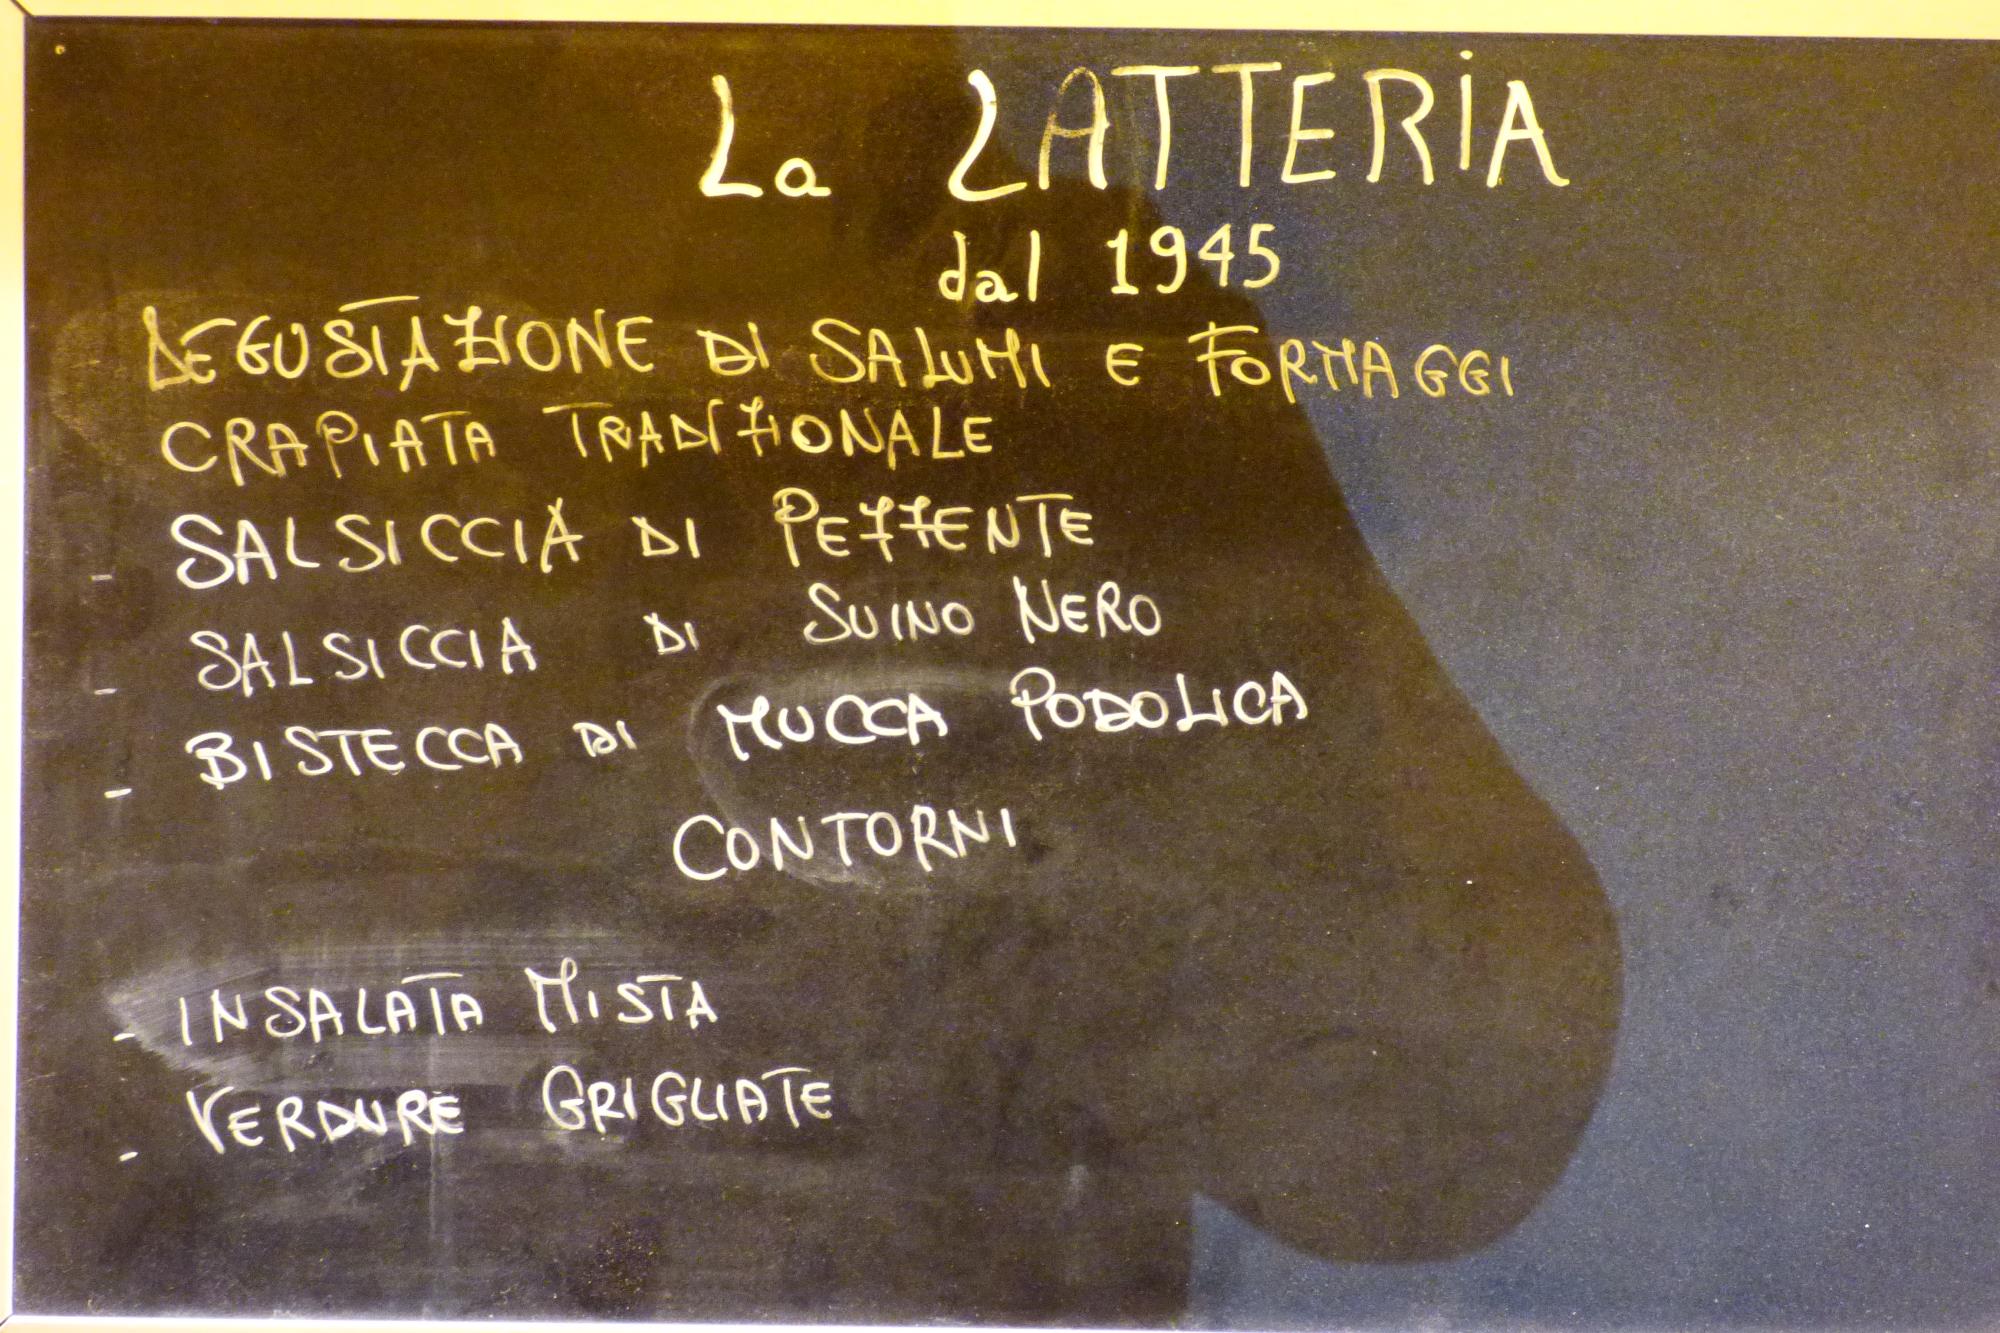 La LATTERIA
dal 1945
DEGUSTAZIONE DI SALUMI E FORMAGGI
CRAPIATA TRADIZIONALE
- SALSICCIA DI PEZZENTE
- SALSICCIA DI SUINO NERO
- BISTECCA DI MUCCA PODOLICA
CONTORNI
- INSALATA MISTA
- VERDURE GRIGLIATE